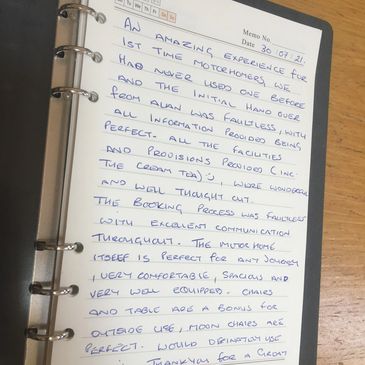 Mo Tu We Th Fr Sa Su
Memo No.
Date 30 · 07 · 21.
AN AMAZING EXPERIENCE FOR
1ST TIME MOTORHOMERS, WE
HAD NEVER USED ONE BEFORE
AND THE INITIAL HAND OVER
FROM ALAN WAS FAULTLESS, WITH
ALL INFORMATION PROVIDED BEING
PERFECT. ALL THE FACILITIES
AND PROVISIONS PROVIDED (INC.
THE CREAM TEA) :), WERE WONDERFUL
AND WELL THOUGHT OUT.
THE BOOKING PROCESS WAS FAULTLESS
WITH EXCELLENT COMMUNICATION
THROUGHOUT. THE MOTORHOME
ITSELF IS PERFECT FOR ANY JOURNEY
, VERY COMFORTABLE, SPACIOUS AND
VERY WELL EQUIPPED. CHAIRS
AND TABLE ARE A BONUS FOR
OUTSIDE USE, MOON CHAIRS ARE
PERFECT. WOULD DEFINATLY USE
THANKYOU FOR A GREAT